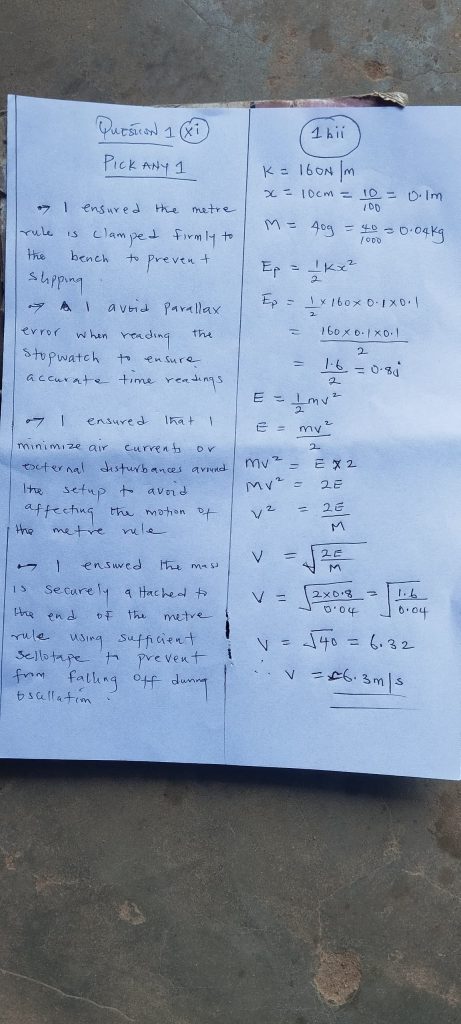 QUESTION 1 (xi)
PICK ANY 1
→ I ensured the metre
rule is clamped firmly to
the bench to prevent
slipping.
→ I avoid Parallax
error when reading the
stopwatch to ensure
accurate time readings
→ I ensured that I
minimize air currents or
external disturbances around
the setup to avoid
affecting the motion of
the metre rule
→ I ensured the mass
is securely attached to
the end of the metre
rule using sufficient
sellotape to prevent
from falling off during
oscillation.
1bii
K = 160N/m
x = 10cm = 10/100 = 0.1m
M = 40g = 40/1000 = 0.04kg
Ep = 1/2 Kx²
Ep = 1/2 x 160 x 0.1 x 0.1
= 160 x 0.1 x 0.1 / 2
= 1.6/2 = 0.8j
E = 1/2 mv²
E = mv²/2
mv² = E x 2
MV² = 2E
V² = 2E/M
V = √(2E/M)
V = √(2x0.8/0.04) = √(1.6/0.04)
V = √40 = 6.32
∴ V = 6.3m/s